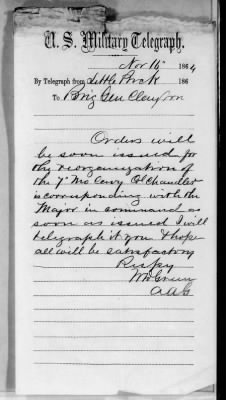 U. S. Military Telegraph.
Nov 16" 1864
By Telegraph from Little Rock 186
To Brig Gen Clayton
Orders will
be soon issued for
the reorganization of
the 7" Mo Cavy Col Chandler
is corresponding with the
Major in command as
soon as issued I will
telegraph it you & hope
all will be satisfactory
Respy
W D Green
A A G